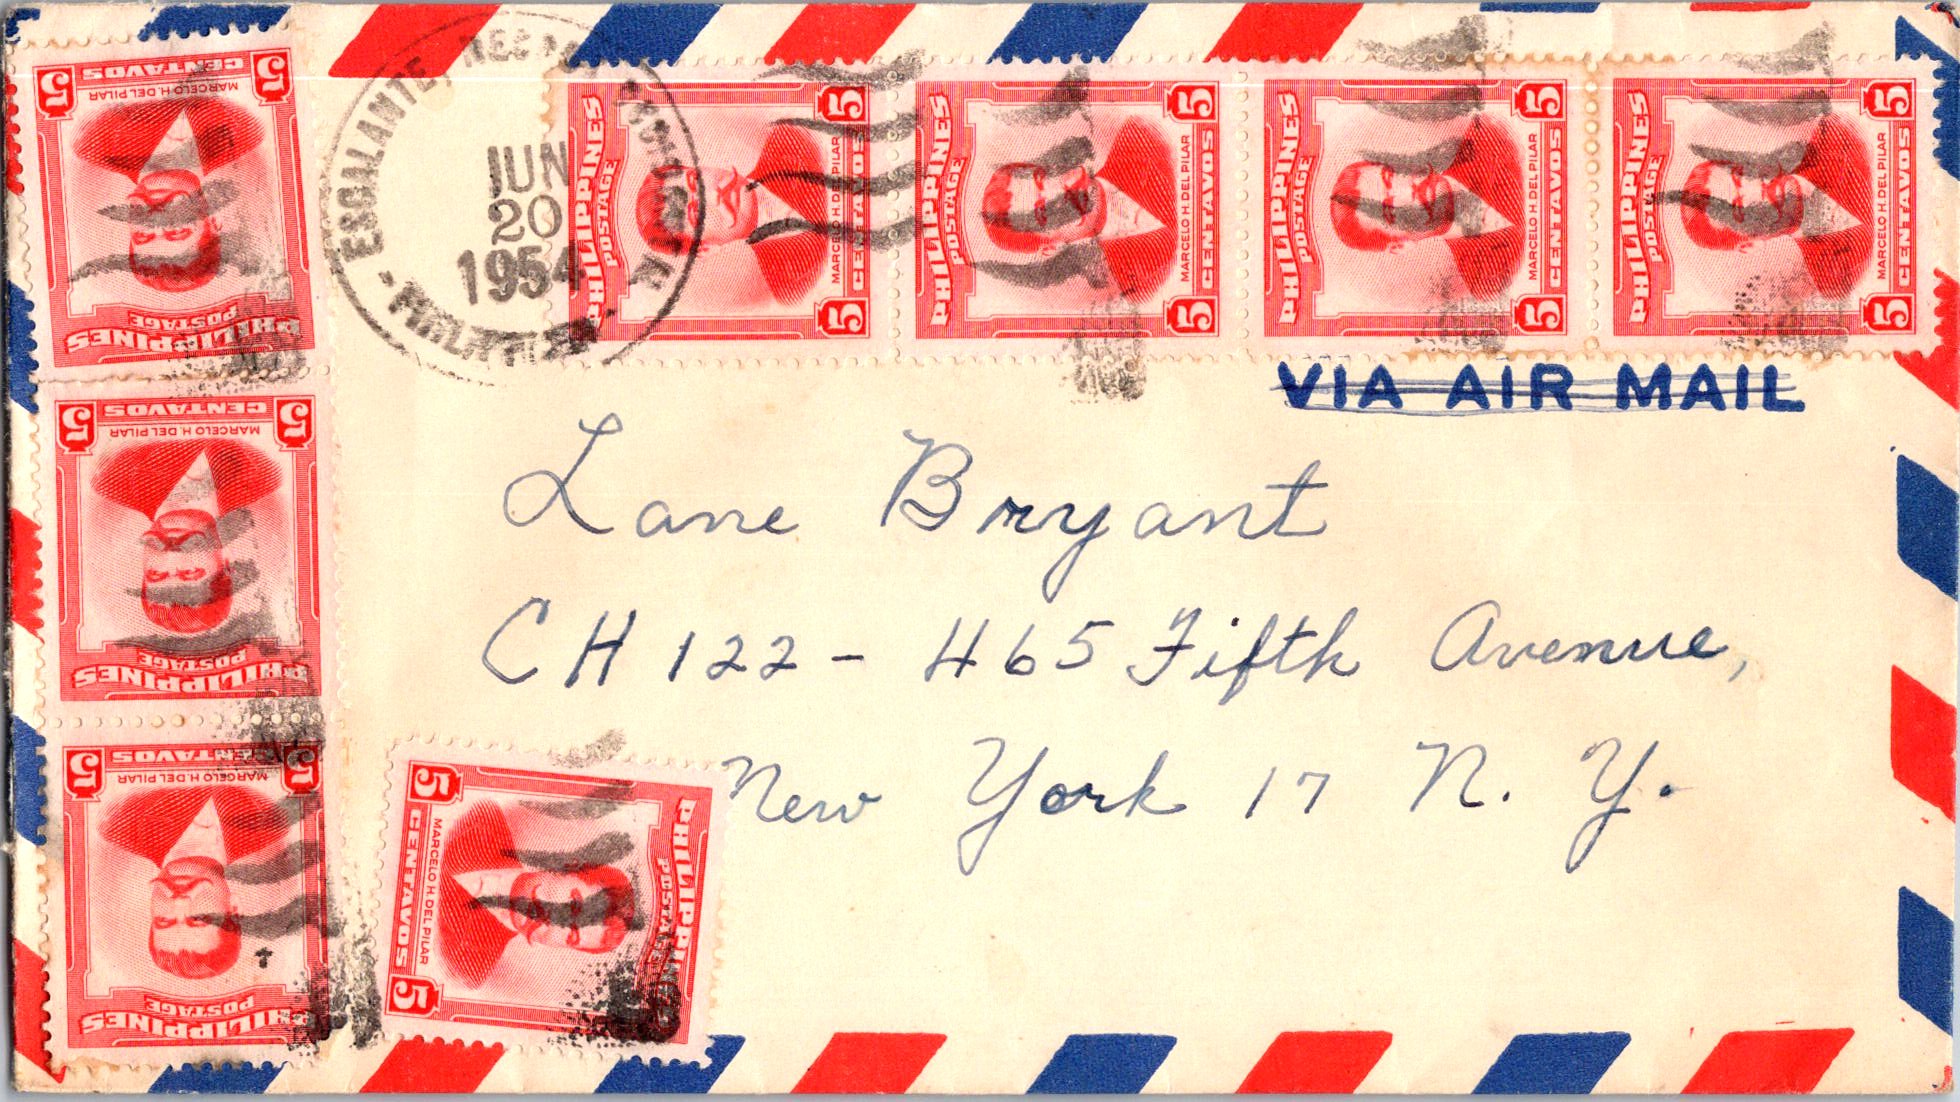 ESCALANTE, NEGROS OCCIDENTAL
JUN
20
1954
PHILIPPINES
POSTAGE
MARCELO H. DEL PILAR
5 CENTAVOS 5
PHILIPPINES
POSTAGE
MARCELO H. DEL PILAR
5 CENTAVOS 5
PHILIPPINES
POSTAGE
MARCELO H. DEL PILAR
5 CENTAVOS 5
PHILIPPINES
POSTAGE
MARCELO H. DEL PILAR
5 CENTAVOS 5
VIA AIR MAIL
Lane Bryant
CH 122 - 465 Fifth Avenue,
New York 17 N. Y.
5 CENTAVOS 5
MARCELO H. DEL PILAR
POSTAGE
PHILIPPINES
5 CENTAVOS 5
MARCELO H. DEL PILAR
POSTAGE
PHILIPPINES
5 CENTAVOS 5
MARCELO H. DEL PILAR
POSTAGE
PHILIPPINES
5 CENTAVOS 5
MARCELO H. DEL PILAR
POSTAGE
PHILIPPINES